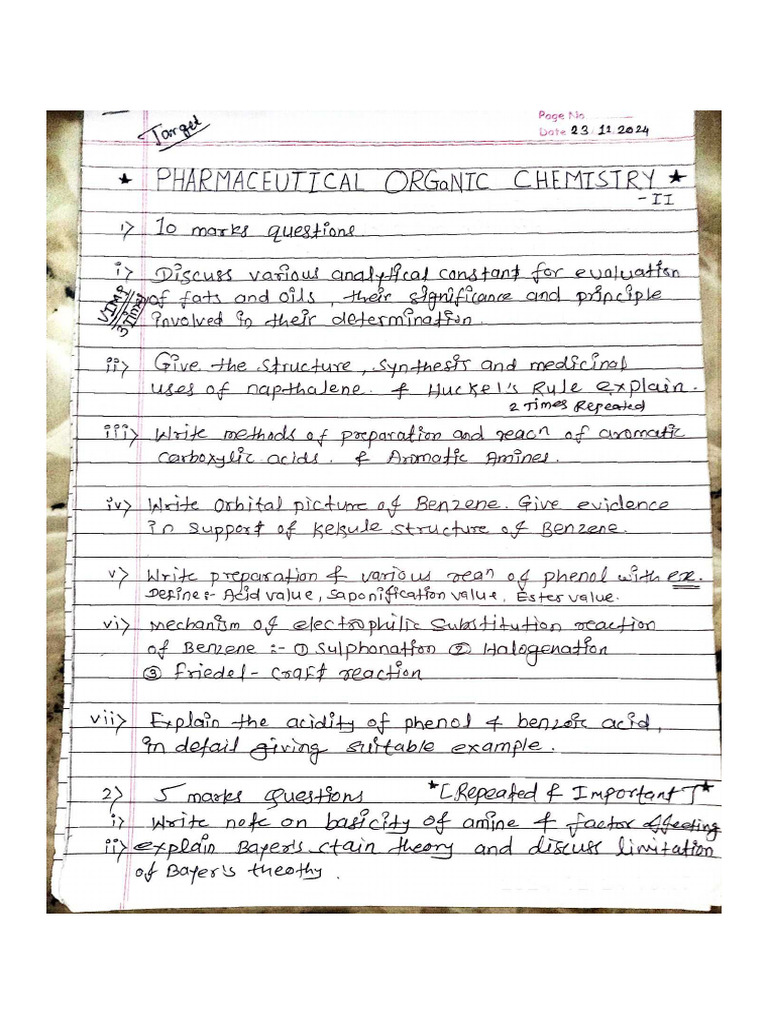 Page No
Target
Date 23.11.2024
★ PHARMACEUTICAL ORGaNIC CHEMISTRY ★
-II
1) 10 marks questions
i) Discuss various analytical constant for evaluation
VIMP
3 Times
of fats and oils, their significance and principle
involved in their determination.
ii) Give the structure, synthesis and medicinal
uses of napthalene. & Huckel's Rule explain.
2 Times Repeated
iii) Write methods of preparation and reacn of aromatic
carboxylic acids. & Aromatic Amines.
iv) Write Orbital picture of Benzene. Give evidence
in support of Kekule structure of Benzene.
v) Write preparation & various rean of phenol with ex.
Define:- Acid value, Saponification value, Ester value.
vi) Mechanism of electrophilic substitution reaction
of Benzene :- ① Sulphonation ② Halogenation
③ Friedel-craft reaction
vii) Explain the acidity of phenol & benzoic acid,
in detail giving suitable example.
2) 5 marks questions *[Repeated & Important]*
i) Write note on basicity of amine & factor affecting
ii) explain Bayer's stain theory and discuss limitation
of Bayer's theothy.